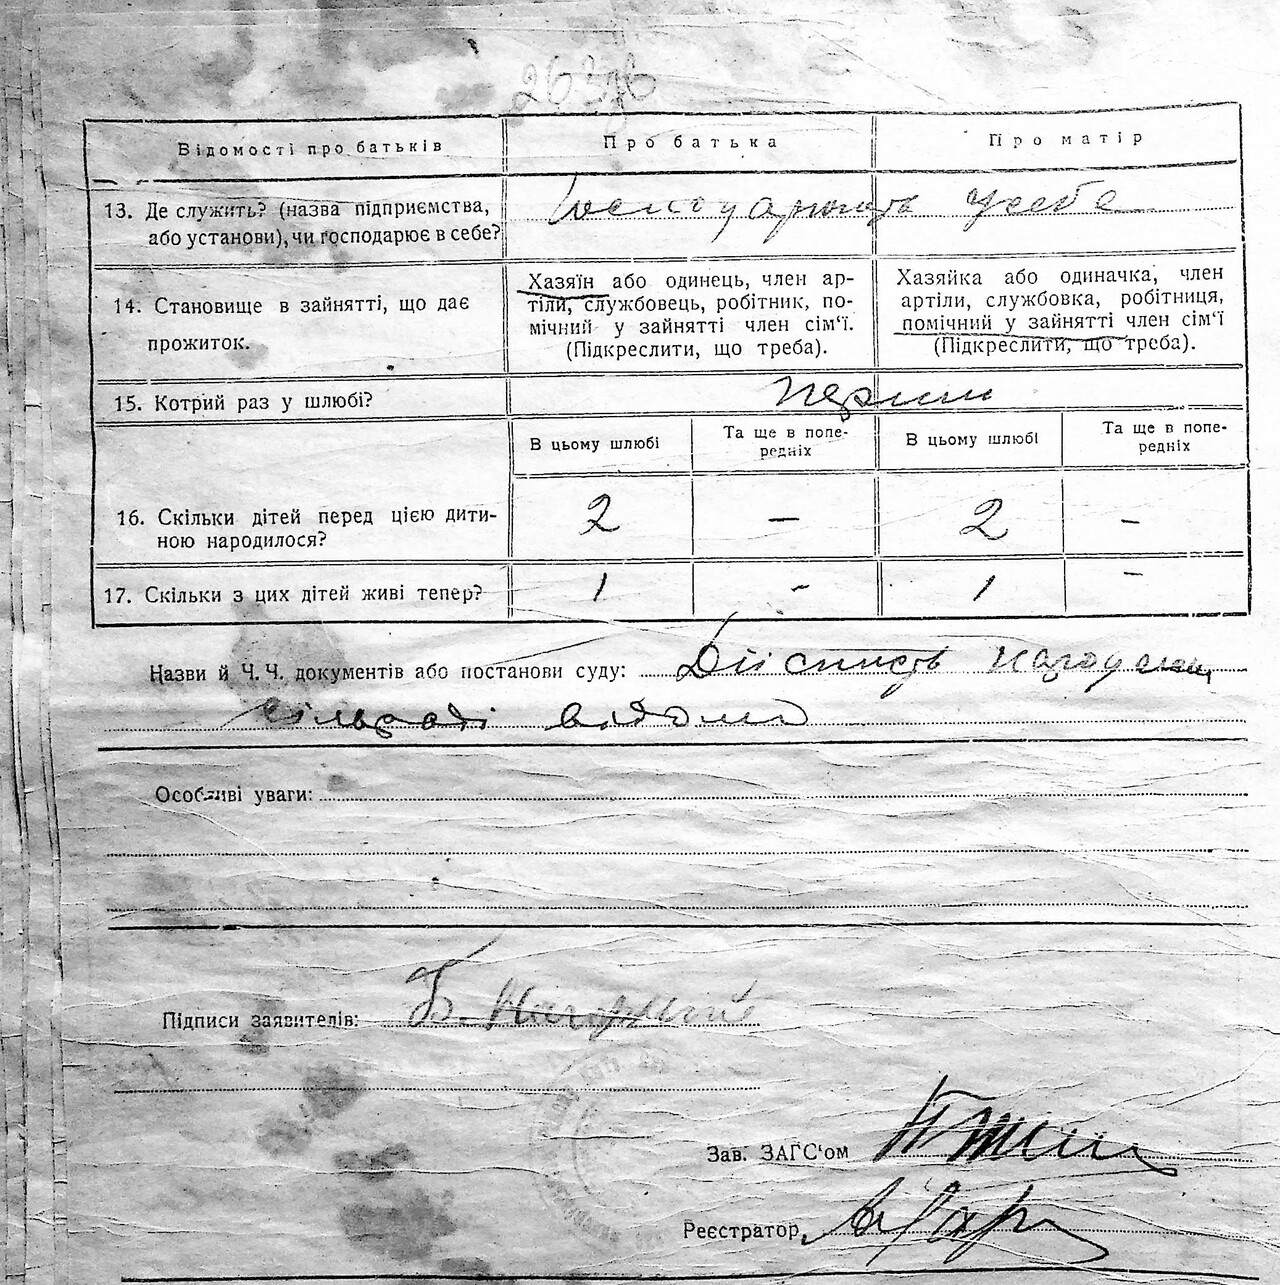 263зв
Відомості про батьків
Про батька
Про матір
13. Де служить? (назва підприємства,
або установи), чи господарює в себе?
Господарюють у себе
14. Становище в зайнятті, що дає
прожиток.
Хазяїн або одинець, член ар-
тіли, службовець, робітник, по-
мічний у зайнятті член сім‘ї.
(Підкреслити, що треба).
Хазяйка або одиначка, член
артіли, службовка, робітниця,
помічний у зайнятті член сім‘ї
(Підкреслити, що треба).
15. Котрий раз у шлюбі?
Перший
В цьому шлюбі
Та ще в попе-
редніх
В цьому шлюбі
Та ще в попе-
редніх
16. Скільки дітей перед цією дити-
ною народилося?
2 – 2 –
17. Скільки з цих дітей живі тепер?
1 - 1 –
Назви й Ч. Ч. документів або постанови суду: Дійсність народження
сільраді відома
Особливі уваги:
Підписи заявителів: Б. Нагорний
Зав. ЗАГС‘ом
Реєстратор